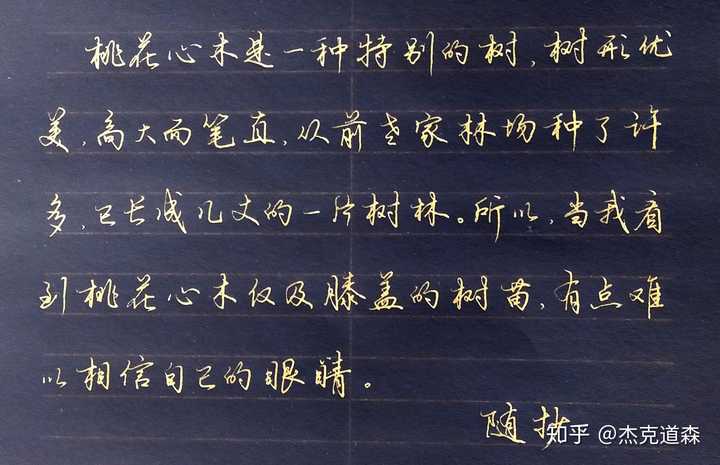 桃花心木是一种特别的树,树形优
美,高大而笔直,从前老家林场种了许
多,已长成几丈的一片树林。所以,当我看
到桃花心木仅及膝盖的树苗,有点难
以相信自己的眼睛。
随抄
知乎 @杰克道森